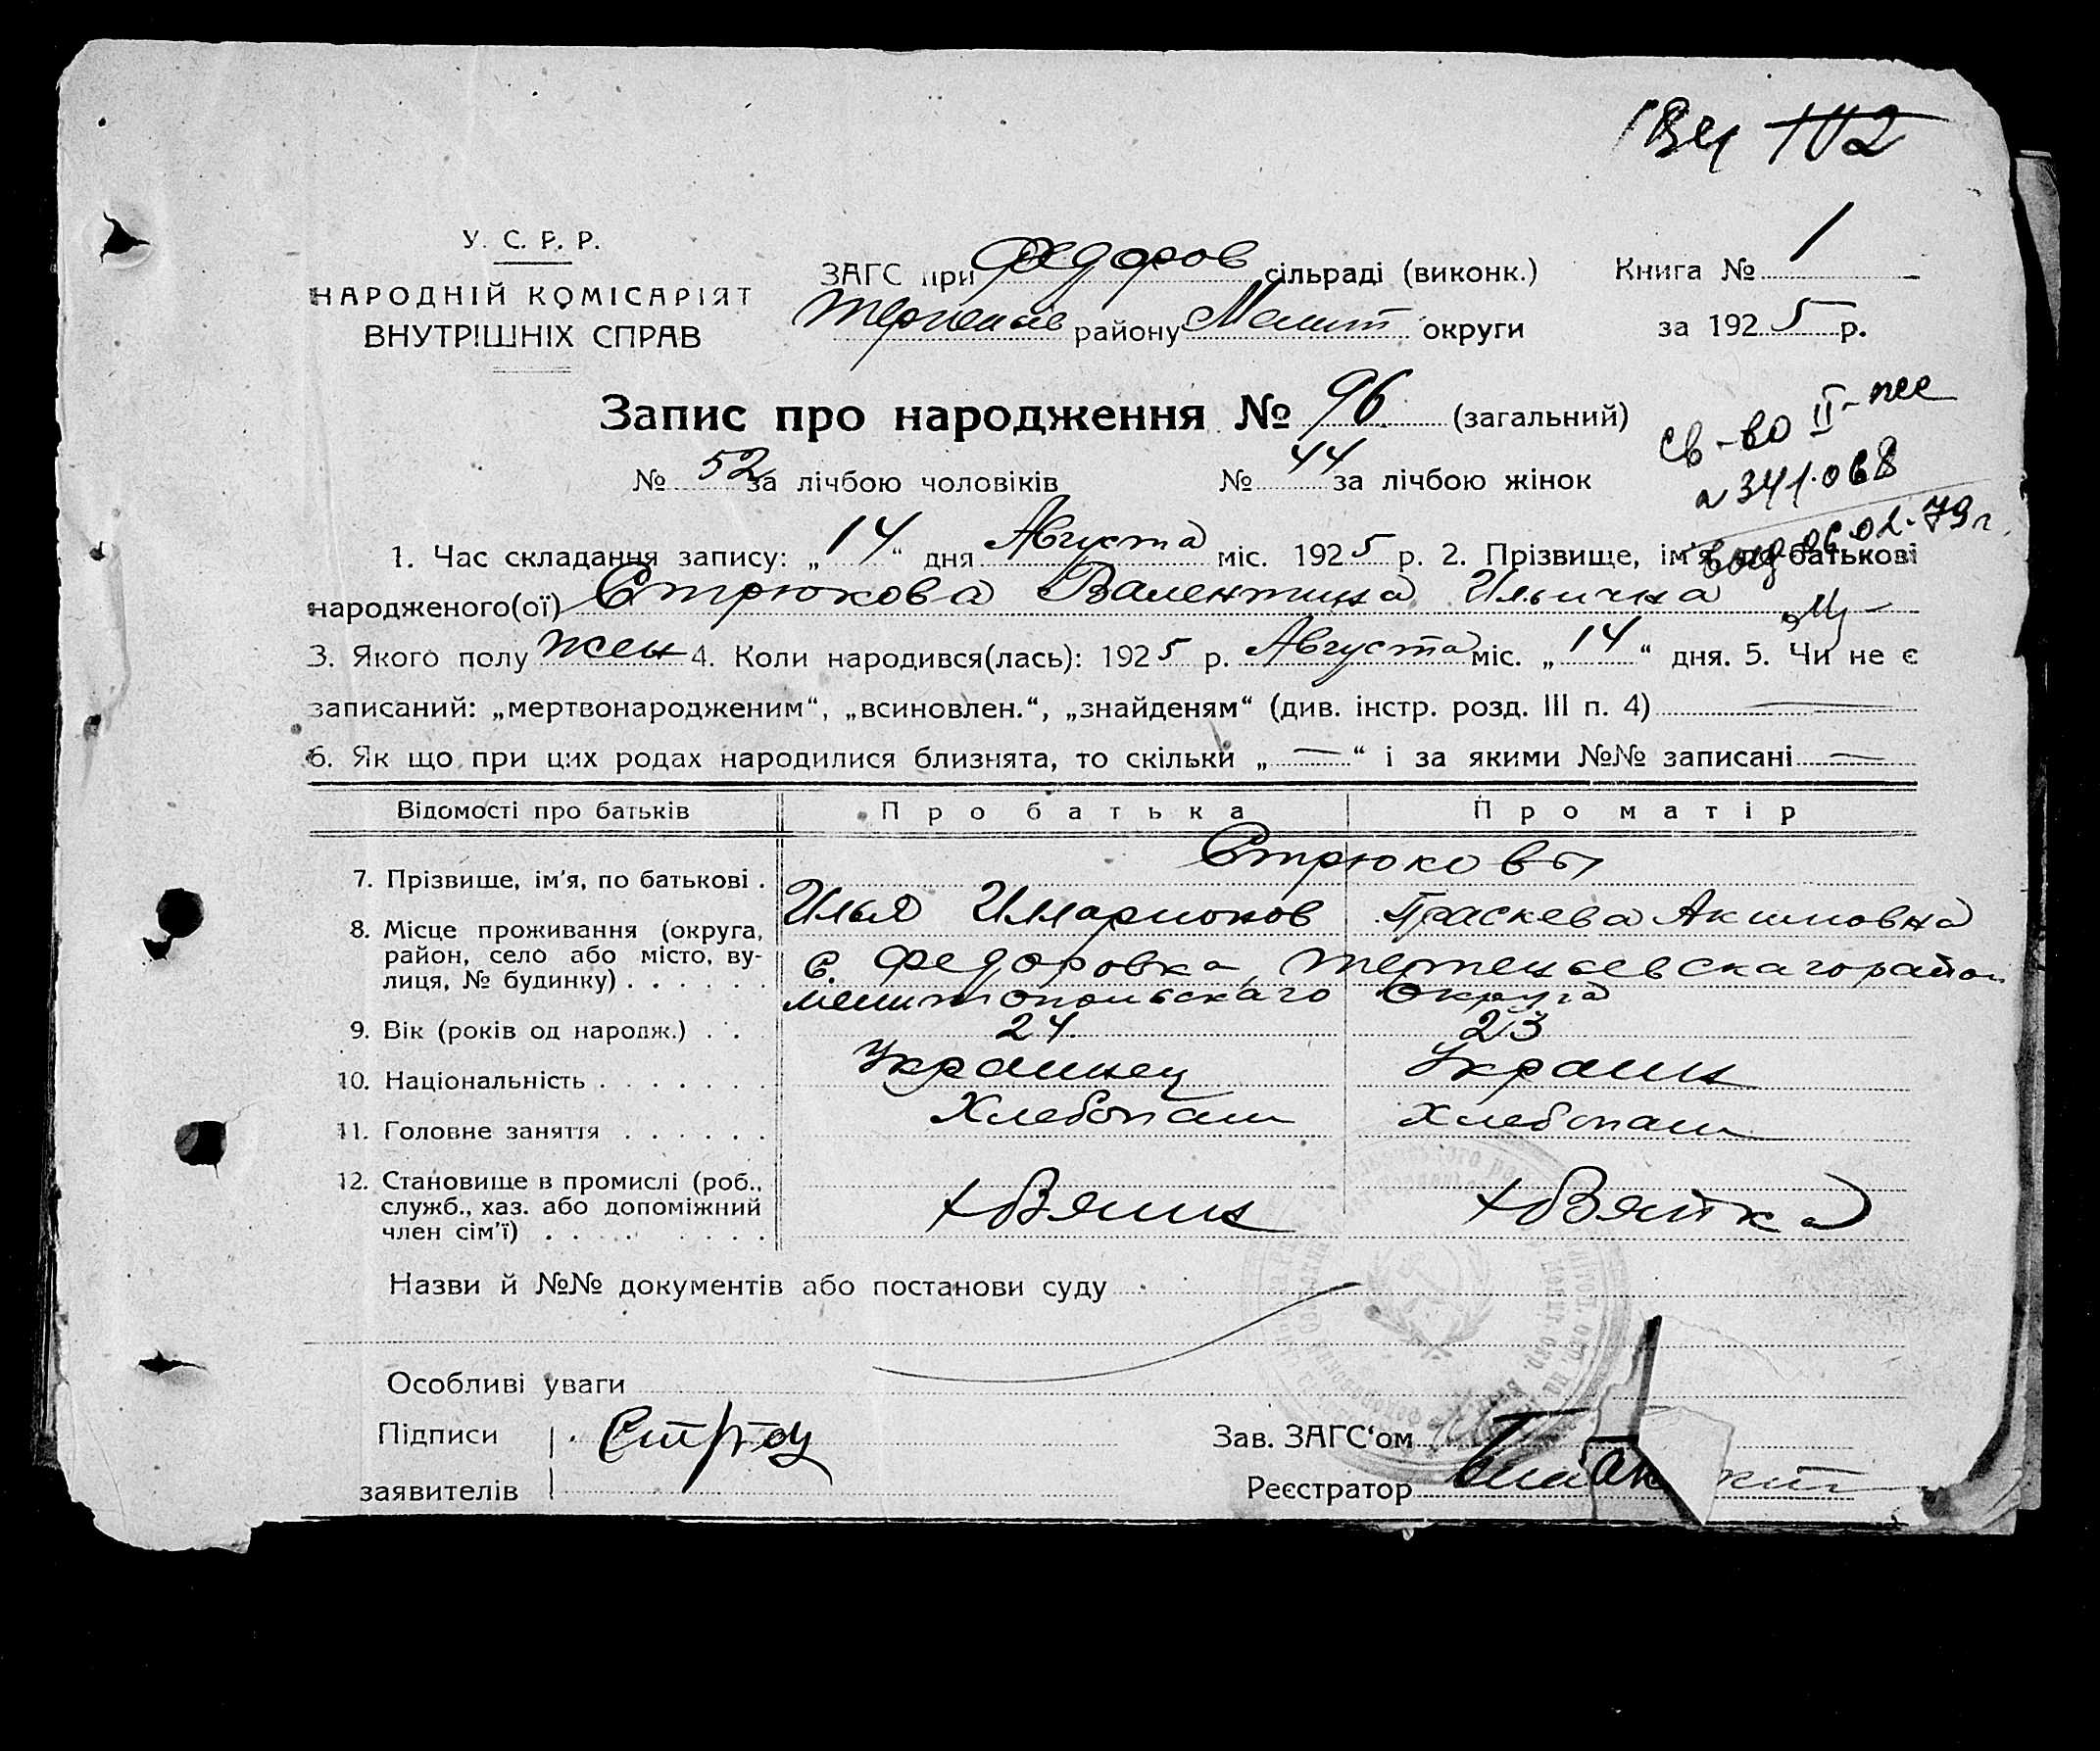 У. С. Р. Р.
НАРОДНІЙ КОМІСАРІЯТ
ВНУТРІШНІХ СПРАВ
ЗАГС при Федоров сільраді (виконк.) Книга № 1
району Мелит округи за 1925 р.
Запис про народження № 96 (загальний)
св-во II-
№ 52 за лічбою чоловіків № 44 за лічбою жінок
341068
06.02.79г.
1. Час складання запису: „14“ дня Августа міс. 1925 р. 2. Прізвище, ім'я, по батькові
народженого(ої) Стрюкова Валентина Ильична
3. Якого полу жен 4. Коли народився(лась): 1925 р. Августа міс. „14“ дня. 5. Чи не є
записаний: „мертвонародженим“, „всиновлен.“, „знайденям“ (див. інстр. розд. III п. 4) —
6. Як що при цих родах народилися близнята, то скільки „—“ і за якими №№ записані —
Відомості про батьків Про батька Про матір
Стрюковы
7. Прізвище, ім'я, по батькові . Илья Иларионов Праскева Акимовна
8. Місце проживання (округа,
район, село або місто, ву-
лиця, № будинку) . . . . . .
с. Федоровка,
Мелитопольскаго Округа
9. Вік (років од народж.) . . 24 23
10. Національність . . . . . . . Украинец Украин
11. Головне заняття . . . . . . Хлебопаш Хлебопаш
12. Становище в промислі (роб.,
служб., хаз. або допоміжний
член сім'ї) . . . . . . . .
хозяин хозяйка
Назви й №№ документів або постанови суду
Особливі уваги
Підписи
заявителів
Зав. ЗАГС'ом
Реєстратор